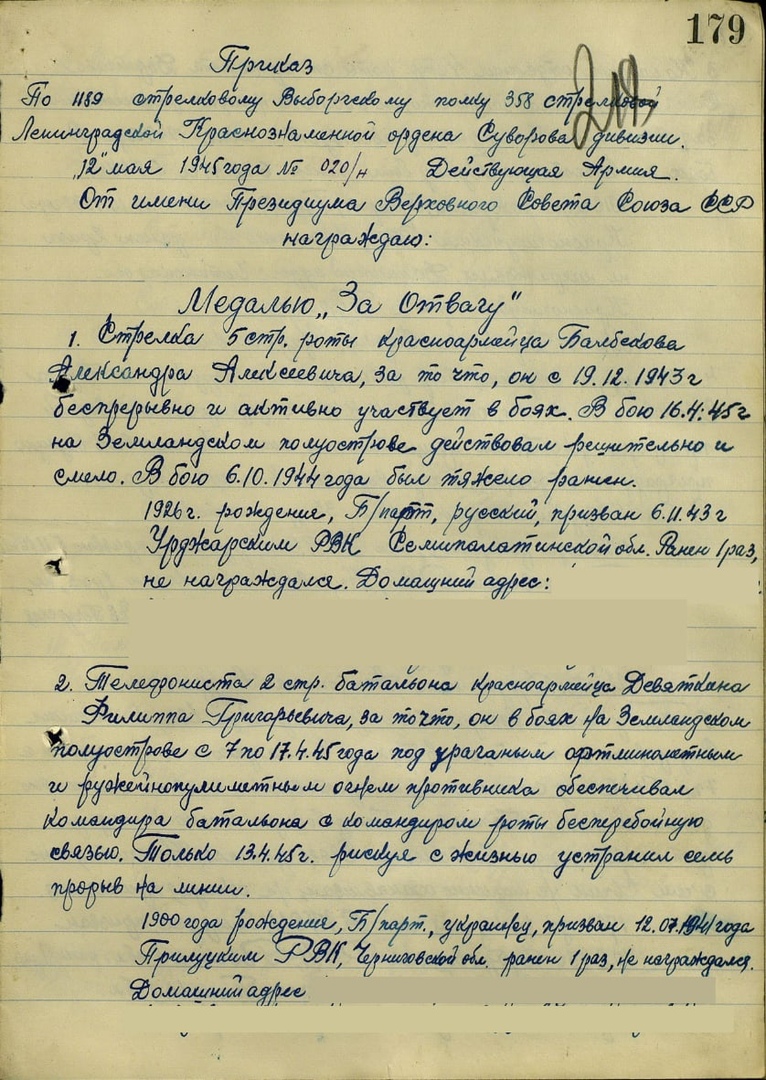 179
Приказ
По 1189 стрелковому Выборгскому полку 358 стрелковой
Ленинградской Краснознаменной ордена Суворова дивизии.
„12" мая 1945 года № 020/н Действующая Армия.
От имени Президиума Верховного Совета Союза ССР
награждаю:
Медалью „За Отвагу"
1. Стрелка 5 стр. роты красноармейца Балбекова
Александра Алексеевича, за то что, он с 19.12.1943 г
беспрерывно и активно участвует в боях. В бою 16.4.45 г
на Земландском полуострове действовал решительно и
смело. В бою 6.10.1944 года был тяжело ранен.
1926 г. рождения, Б/парт, русский, призван 6.11.43 г
Урджарским РВК Семипалатинской обл. Ранен 1 раз,
не награждался. Домашний адрес:
2. Телефониста 2 стр. батальона красноармейца Девяткина
Филиппа Григорьевича, за то что, он в боях на Земландском
полуострове с 7 по 17.4.45 года под ураганым артминометным
и ружейнопулиметным огнем противника обеспечивал
командира батальона с командиром роты бесперебойную
связью. Только 13.4.45 г. рискуя с жизнью устранил семь
прорыв на линии.
1900 года рождения, Б/парт., украинец, призван 12.07.1941 года
Прилуцким РВК, Черниговской обл. ранен 1 раз, не награждался.
Домашний адрес